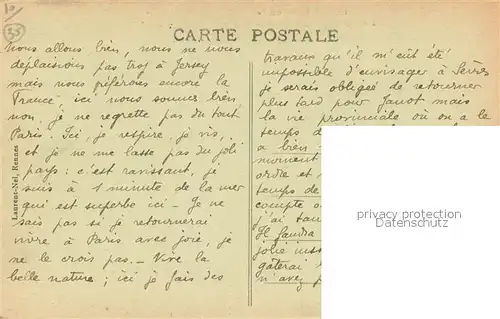 10
35
CARTE POSTALE
Nous allons bien, nous ne nous
déplaisions pas trop à Jersey
mais nous préférons encore la
France, ici nous sommes bien
non, je ne regrette pas du tout
Paris. Ici, je respire, je vis,
et je ne me lasse pas du joli
pays : c'est ravissant, je
suis à 1 minute de la mer
qui est superbe ici - Je ne
sais pas si je retournerai
vivre à Paris avec joie, je
ne le crois pas. - Vive la
belle nature ; ici je fais des
Laurent-Nel, Rennes
travaux qu'il m'eût été
impossible d'envisager à Sèvres
je serais obligée de retourner
plus tard pour Janot mais
la vie provinciale où on a le
temps de
a bien
moment
ordre et
temps de
compte
j'ai
Il faudra
jolie
gâterai
n'avez
privacy protection
www.oldthing.de